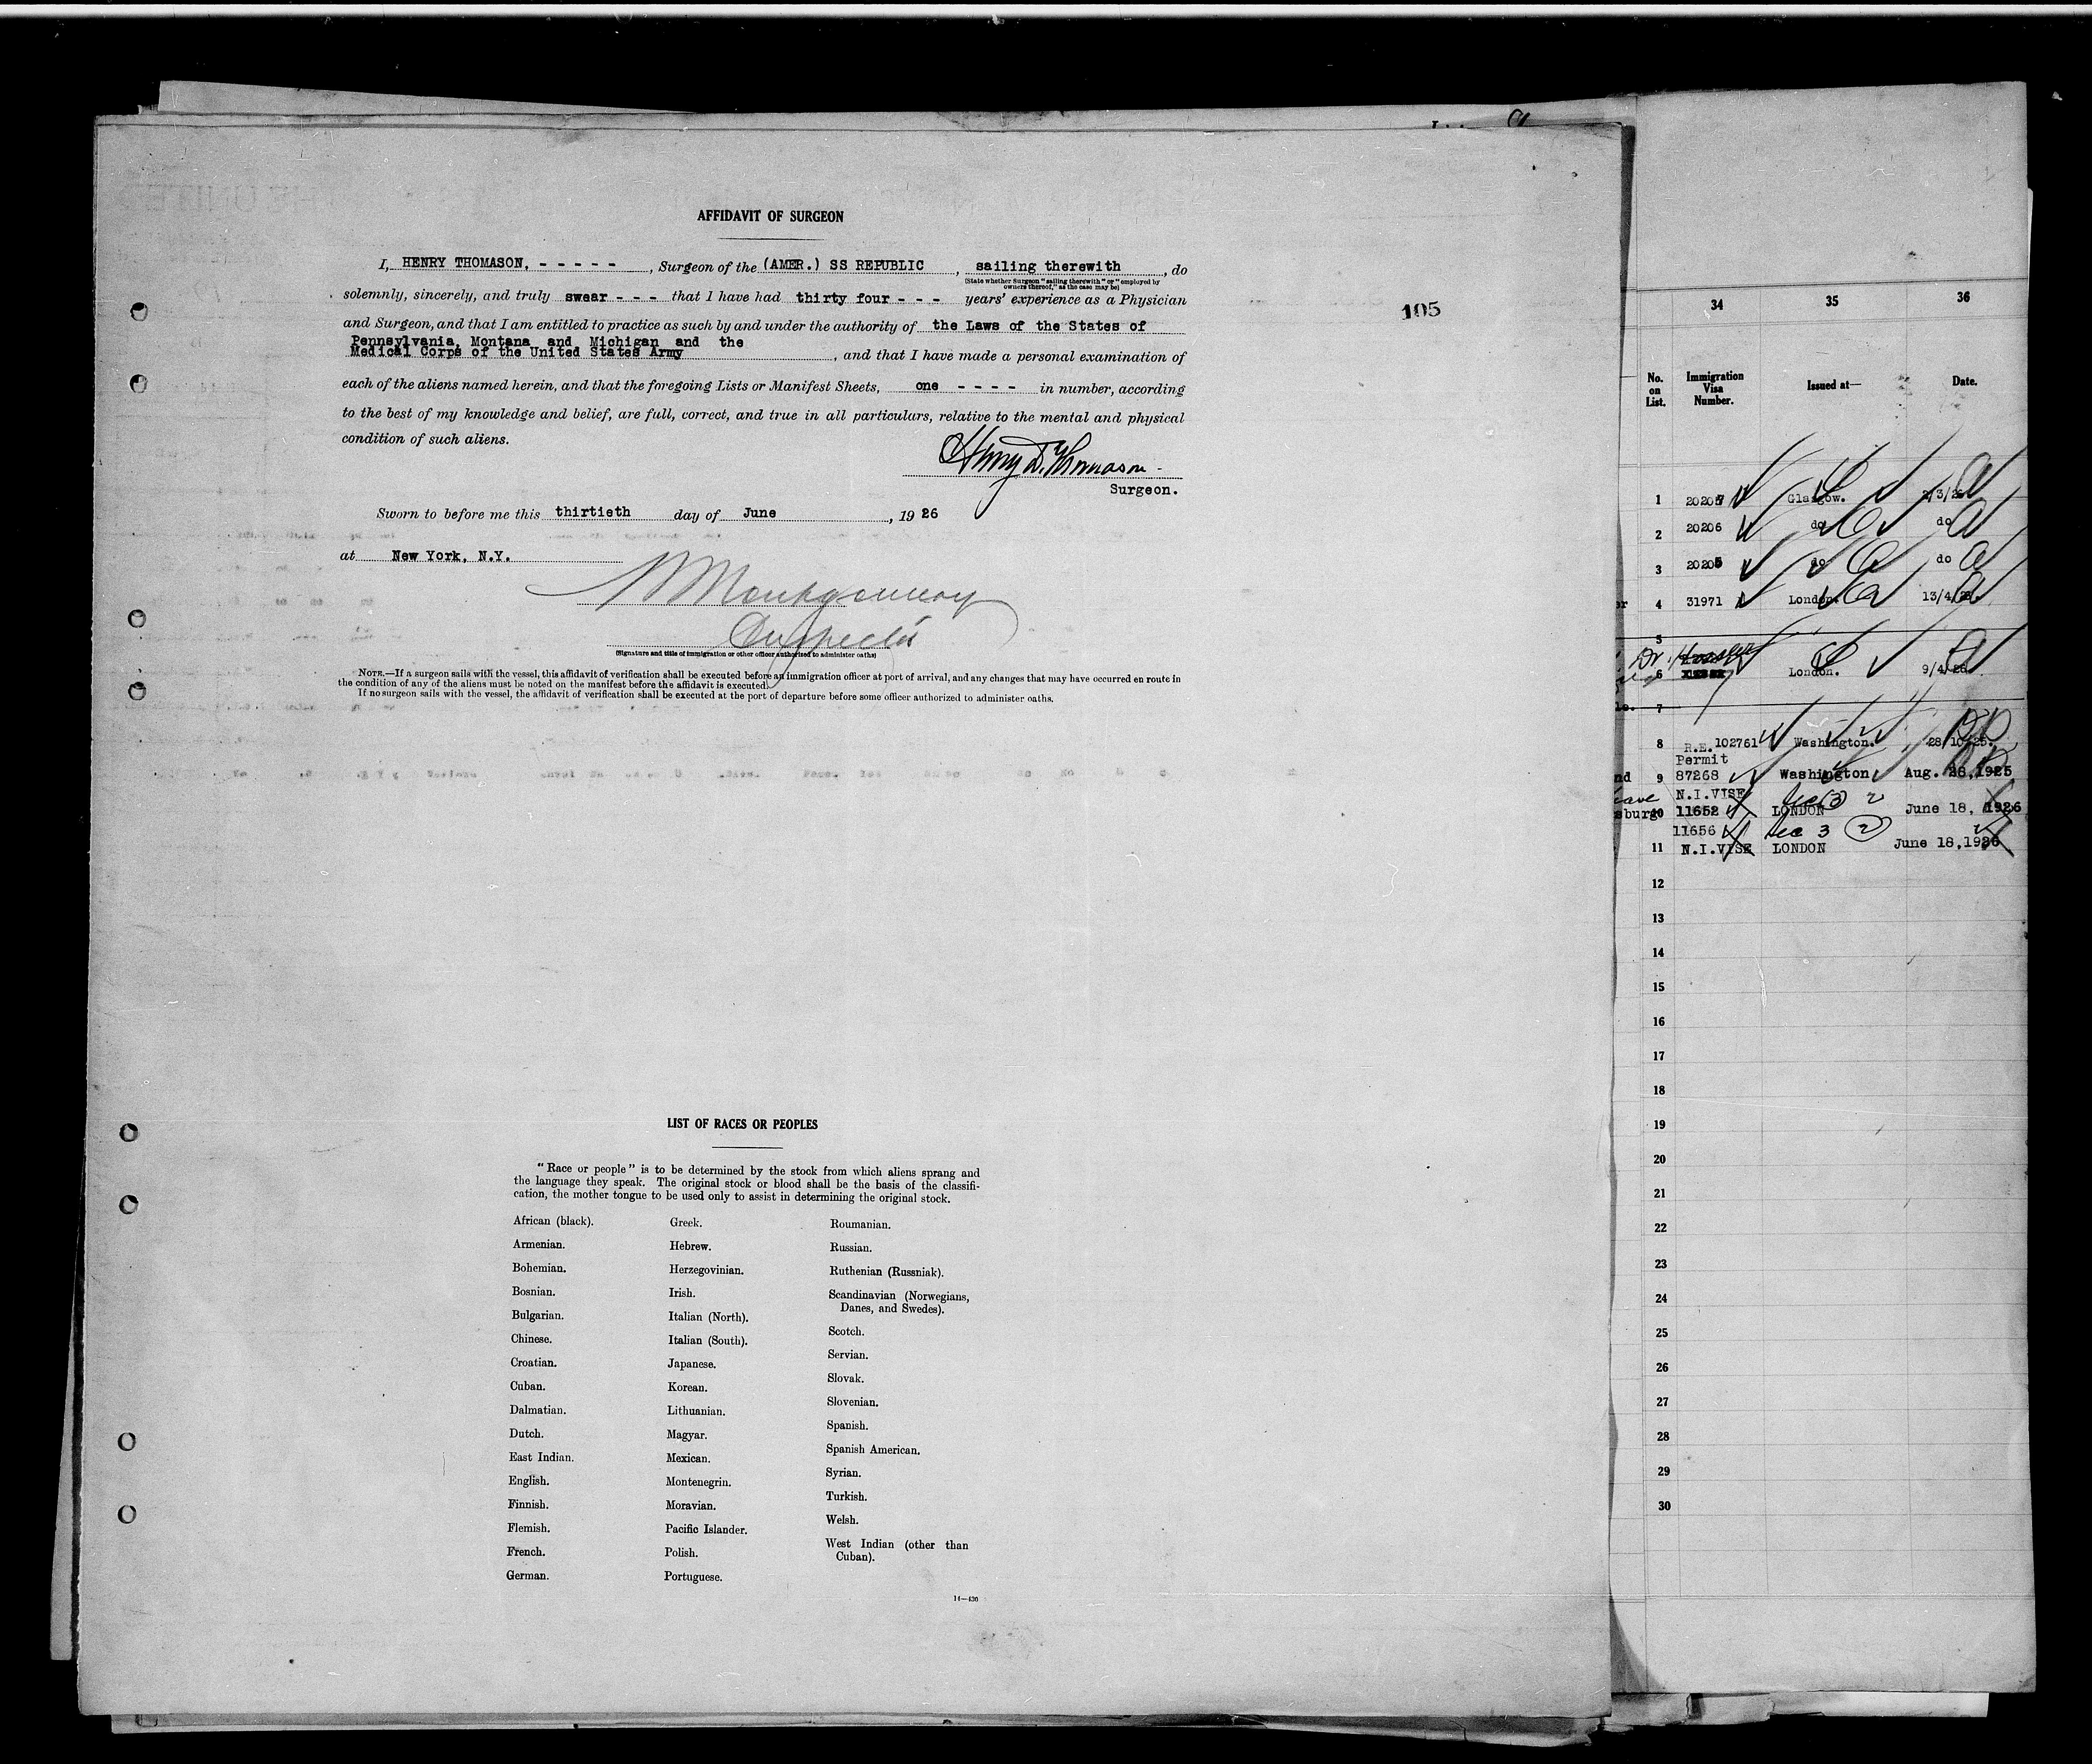 AFFIDAVIT OF SURGEON
I, HENRY THOMASON, - - - - - , Surgeon of the (AMER.) SS REPUBLIC , sailing therewith , do
(State whether Surgeon "sailing therewith" or "employed by
owners thereof," as the case may be)
solemnly, sincerely, and truly swear - - - that I have had thirty four - - - years' experience as a Physician
and Surgeon, and that I am entitled to practice as such by and under the authority of the Laws of the States of
Pennsylvania, Montana and Michigan and the
Medical Corps of the United States Army , and that I have made a personal examination of
each of the aliens named herein, and that the foregoing Lists or Manifest Sheets, one - - - - in number, according
to the best of my knowledge and belief, are full, correct, and true in all particulars, relative to the mental and physical
condition of such aliens.
Henry D. Thomason
Surgeon.
Sworn to before me this thirtieth day of June , 1926
at New York, N.Y.
Montgomery
Inspector
(Signature and title of immigration or other officer authorized to administer oaths)
NOTE.—If a surgeon sails with the vessel, this affidavit of verification shall be executed before an immigration officer at port of arrival, and any changes that may have occurred en route in
the condition of any of the aliens must be noted on the manifest before the affidavit is executed.
If no surgeon sails with the vessel, the affidavit of verification shall be executed at the port of departure before some officer authorized to administer oaths.
105
LIST OF RACES OR PEOPLES
"Race or people" is to be determined by the stock from which aliens sprang and
the language they speak. The original stock or blood shall be the basis of the classifi-
cation, the mother tongue to be used only to assist in determining the original stock.
African (black).
Armenian.
Bohemian.
Bosnian.
Bulgarian.
Chinese.
Croatian.
Cuban.
Dalmatian.
Dutch.
East Indian.
English.
Finnish.
Flemish.
French.
German.
Greek.
Hebrew.
Herzegovinian.
Irish.
Italian (North).
Italian (South).
Japanese.
Korean.
Lithuanian.
Magyar.
Mexican.
Montenegrin.
Moravian.
Pacific Islander.
Polish.
Portuguese.
Roumanian.
Russian.
Ruthenian (Russniak).
Scandinavian (Norwegians,
Danes, and Swedes).
Scotch.
Servian.
Slovak.
Slovenian.
Spanish.
Spanish American.
Syrian.
Turkish.
Welsh.
West Indian (other than
Cuban).
14—436
34 35 36
No. on List. Immigration Visa Number. Issued at— Date.
1 20207 Glasgow.
2 20206 do do
3 20205 do do
4 31971 London. 13/4/26.
5
Dr.
6 London. 9/4/26
7
8 R.E. 102761 Washington. 28/10/25.
Permit
9 87268 Washington Aug. 28, 1925
N.I.VISE Sec (3) 2
10 11652 LONDON June 18, 1926
11656 Sec 3 (2)
11 N.I.VISE LONDON June 18,1926
12
13
14
15
16
17
18
19
20
21
22
23
24
25
26
27
28
29
30